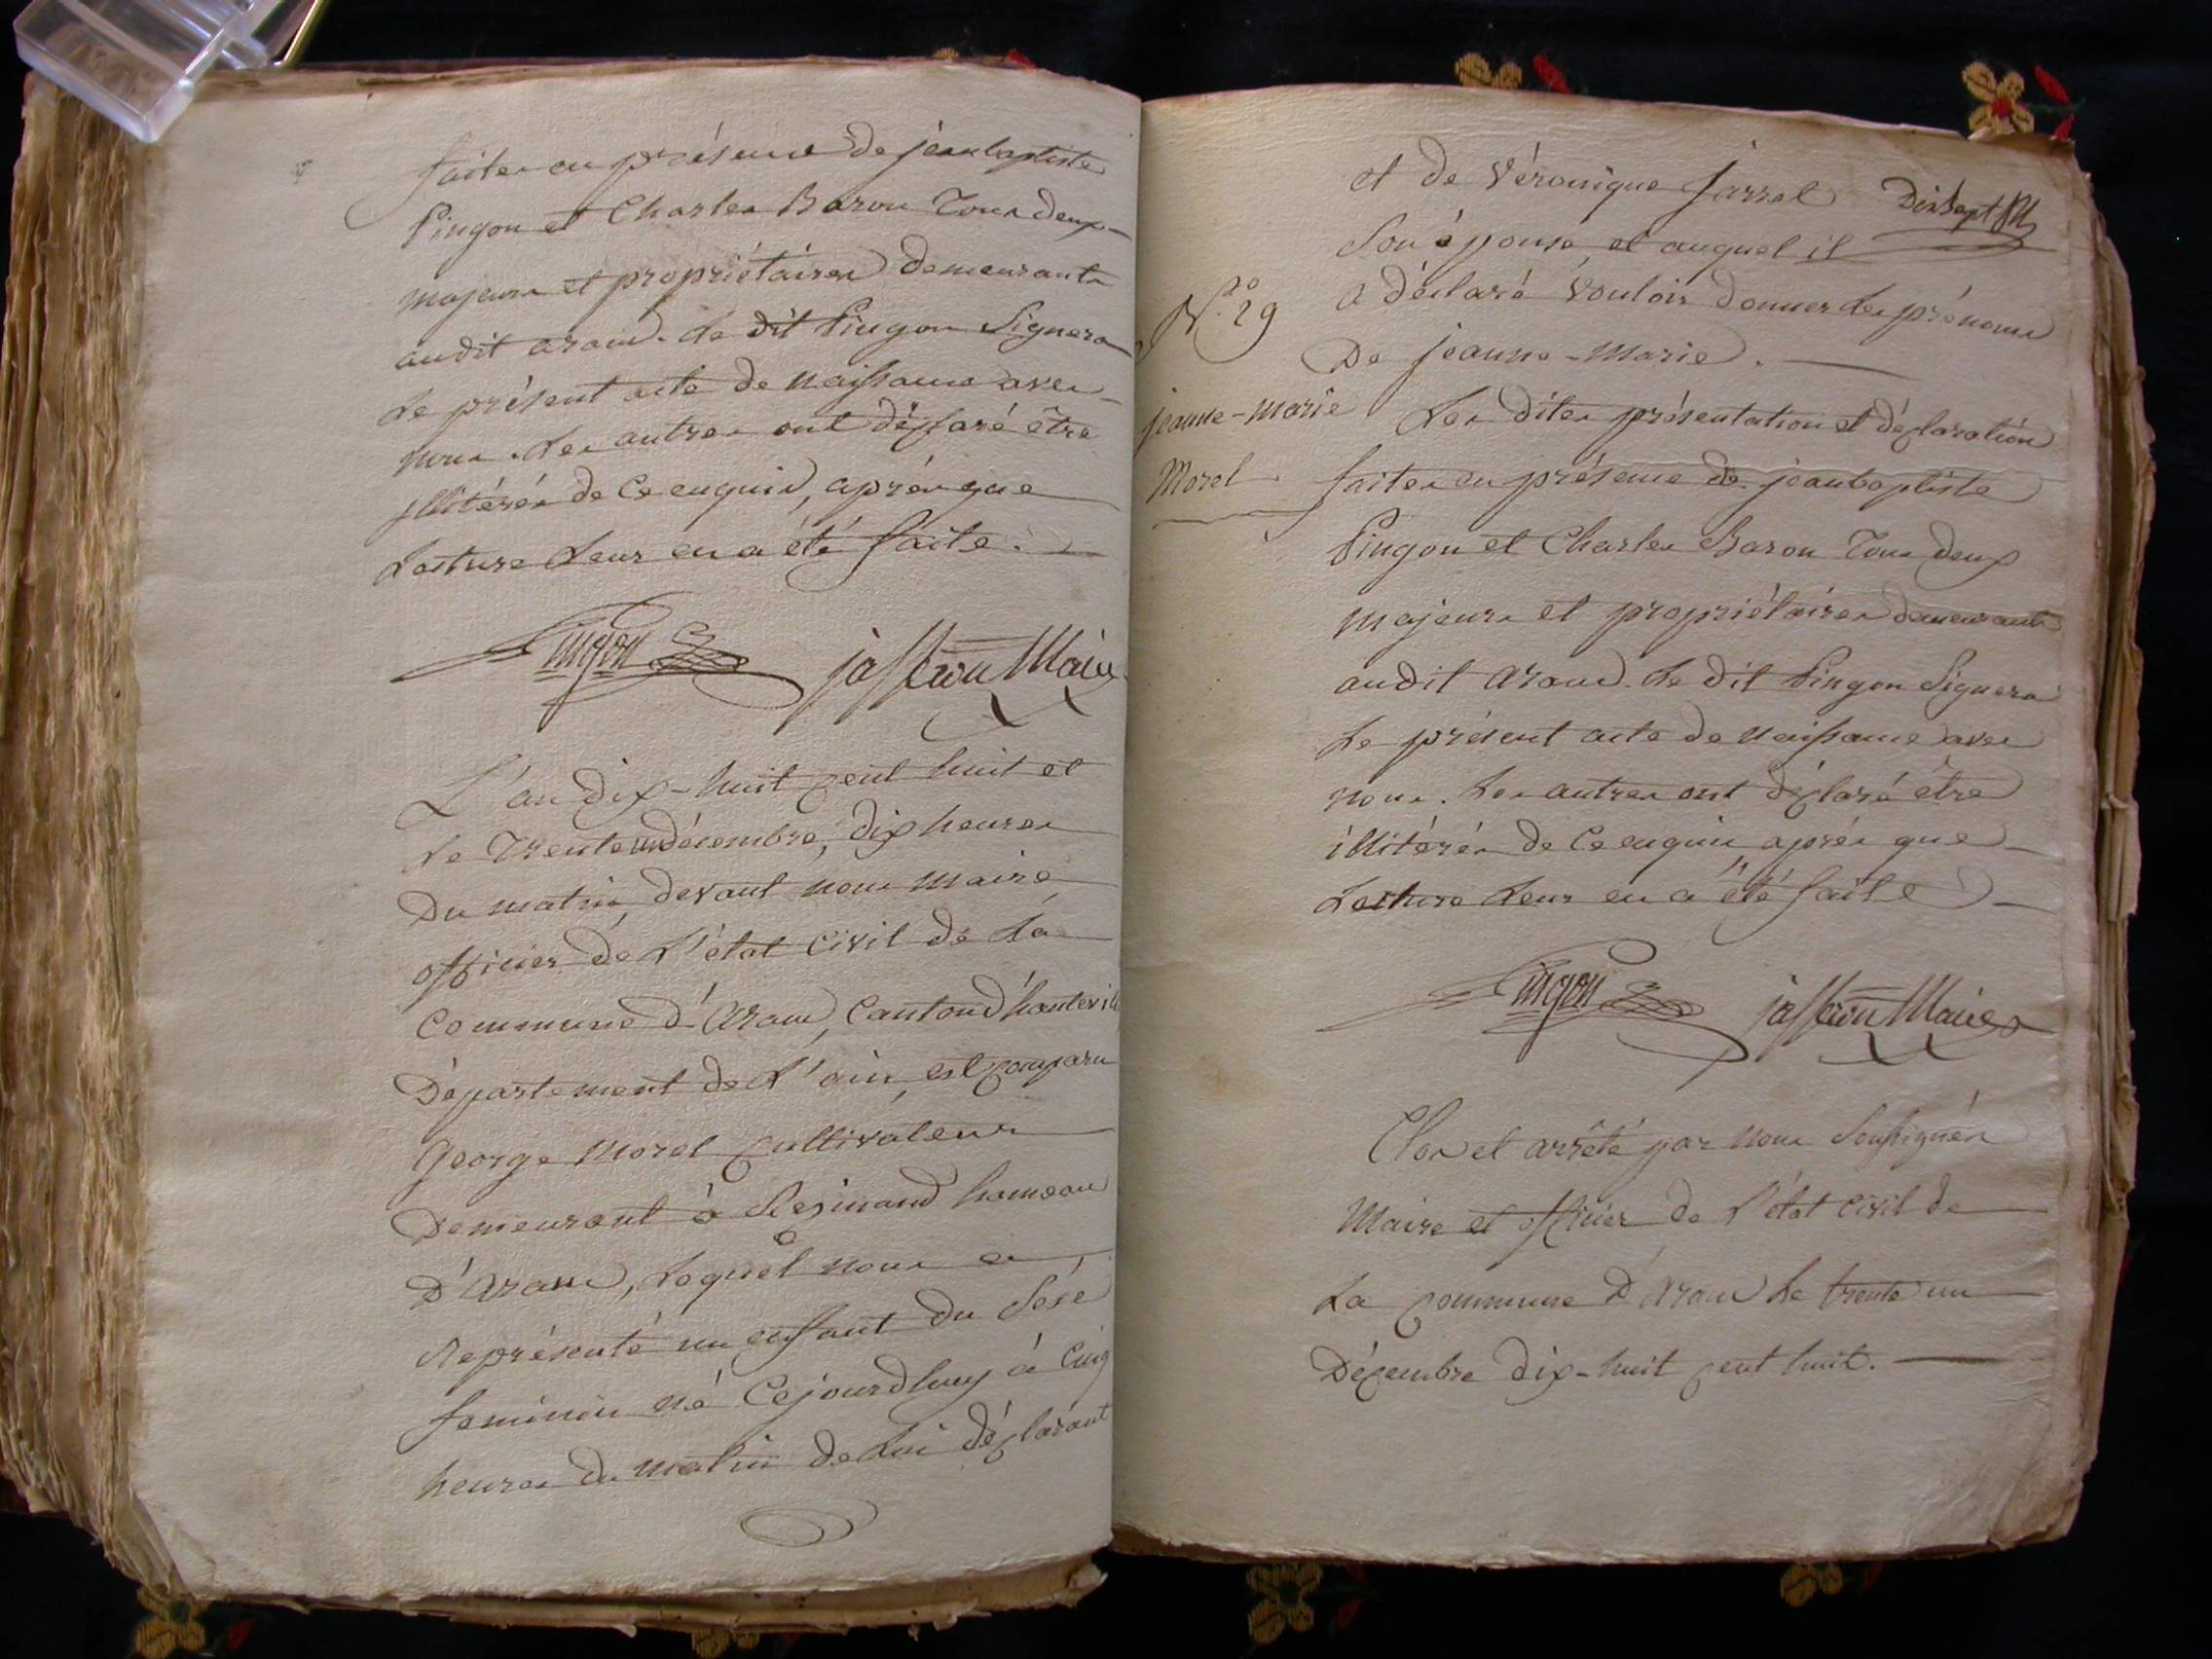 faites en présence de jeanbaptiste
Pingon et Charles Baron Tous deux
majeurs et propriétaires demeurants
audit aranc. Le dit Pingon Signera
Le présent acte de naissance avec
nous. Les autres ont déclaré être
jllitérés de Ce enquis, aprés que
Lecture Leur en a été faite.
Pingon jasseron Maire
L'an dix-huit cent huit et
Le Trente un décembre, dix heures
Du matin, devant nous maire
officier de L'état Civil de La
Commune d'Aranc, Canton d'hauteville
Département de L'ain, est comparu
George Morel cultivateur
Demeurant à Resinand hameau
D'Aranc, Lequel nous a
Représenté un enfant du Sexe
feminin né Cejourdhuy à Cinq
heures du matin de Lui déclarant
et de Véronique jarrel
Dixsept
Son épouse, et auquel il
N.o 29
a déclaré vouloir donner Les prénoms
De jeanne-Marie.
jeanne-Marie
Morel
Les dites présentation et déclaration
faites en présence de jeanbaptiste
Pingon et Charles Baron Tous deux
majeurs et propriétaires demeurants
audit Aranc. Le dit Pingon Signera
Le présent acte de naissance avec
nous. Les autres ont déclaré être
illitérés de Ce enquis, aprés que
Lecture Leur en a été faite
Pingon jasseron Maire
Clos et arrêté par nous Soussignés
Maire et officier de L'état Civil de
La commune d'Aranc Le trente un
Décembre dix-huit cent huit.